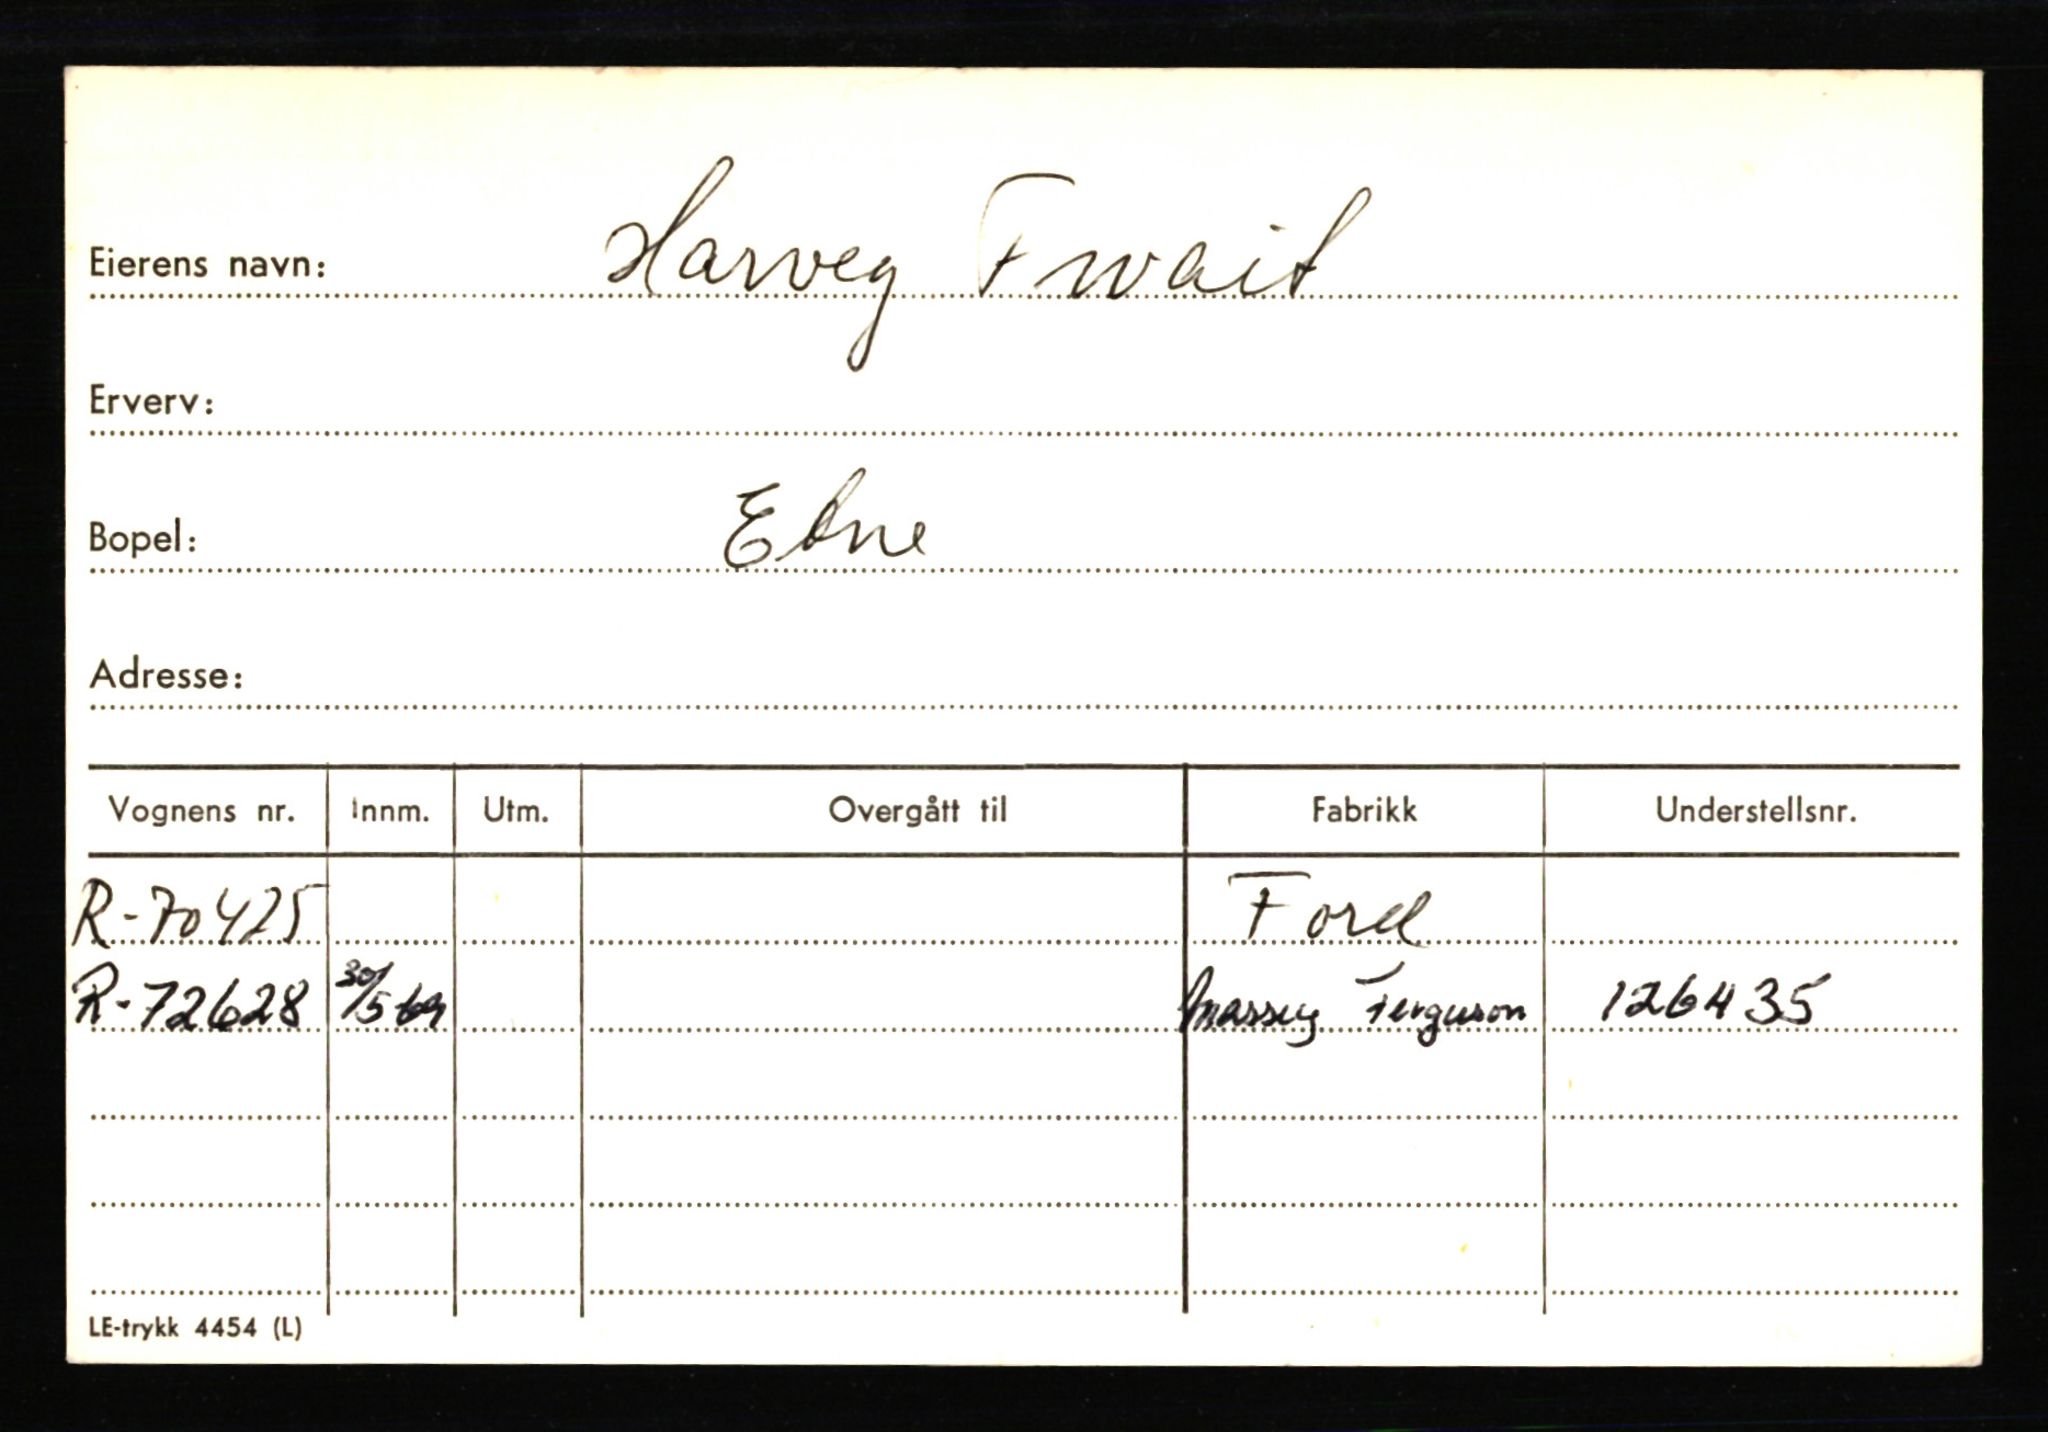 Eierens navn: Harveg Twait
Erverv:
Bopel: Etne
Adresse:
Vognens nr. Innm. Utm. Overgått til Fabrikk Understellsnr.
R-70425 Ford
R-72628 30/5 69 Massey Ferguson 126435
LE-trykk 4454 (L)